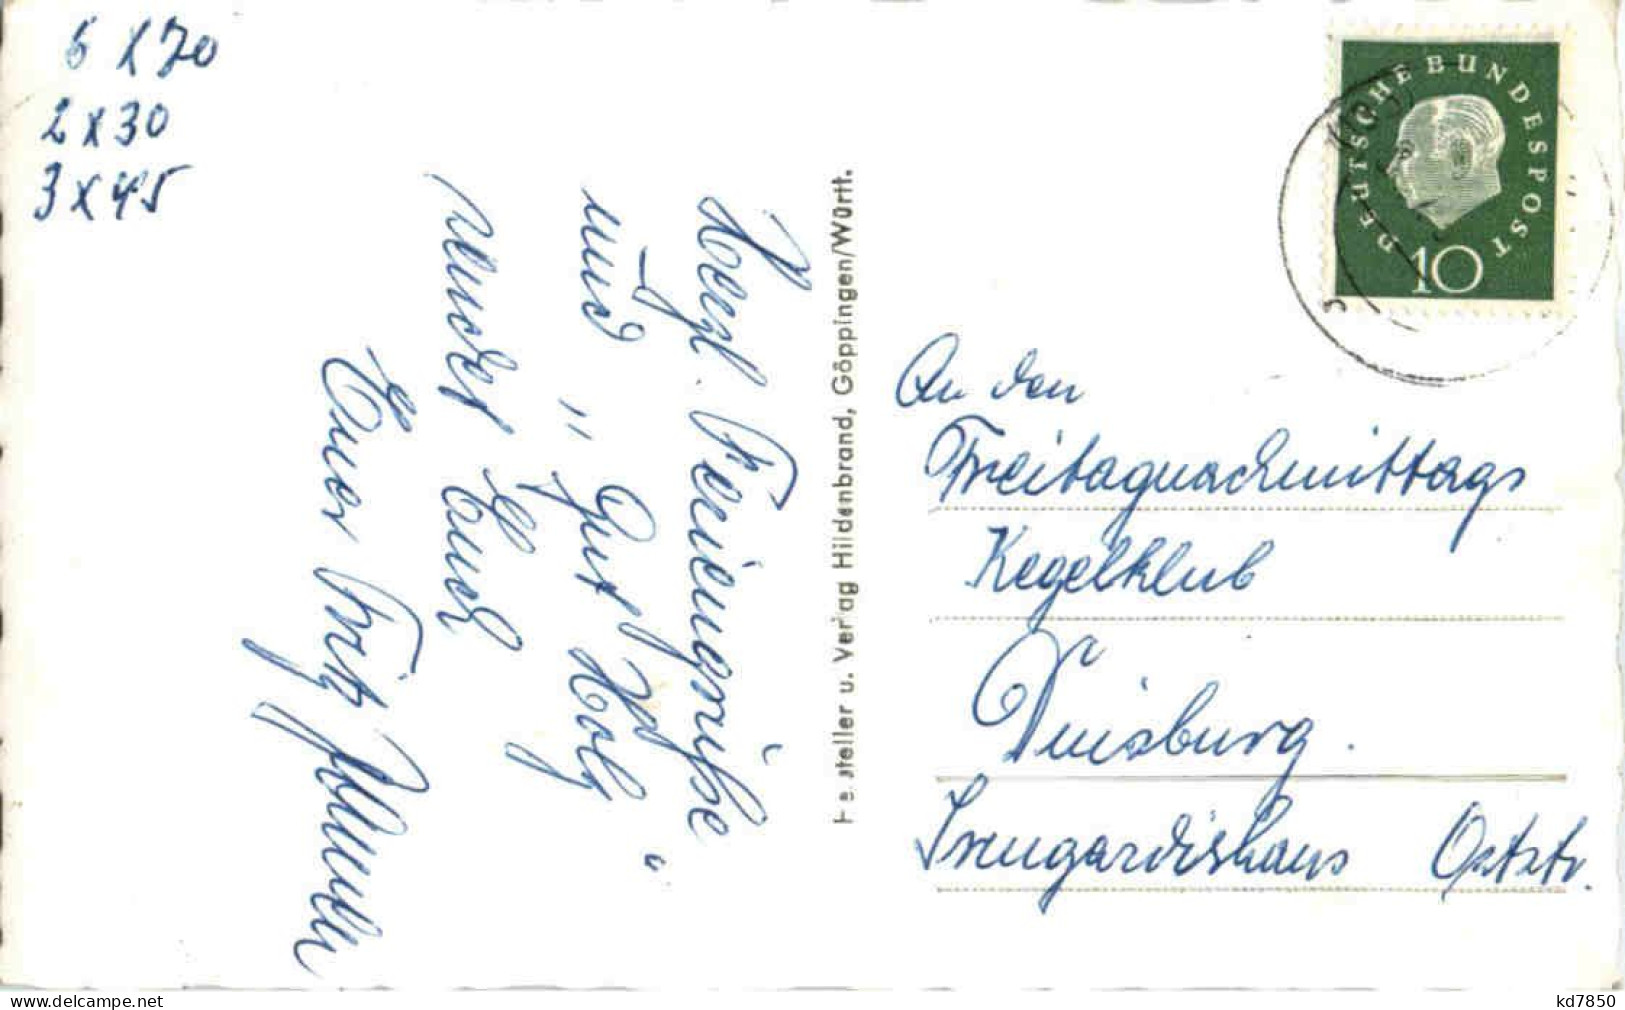 5 x 70
2 x 30
3 x 45
Herzl. Feriengrüße
und "Gut Holz"
Euch
Euer Fritz
Hersteller u. Verlag Hildenbrand, Göppingen/Württ.
DEUTSCHE BUNDESPOST
10
An den
Freitagnachmittags
Kegelklub
Duisburg.
Irmgardishaus Oststr.
www.delcampe.net
kd7850